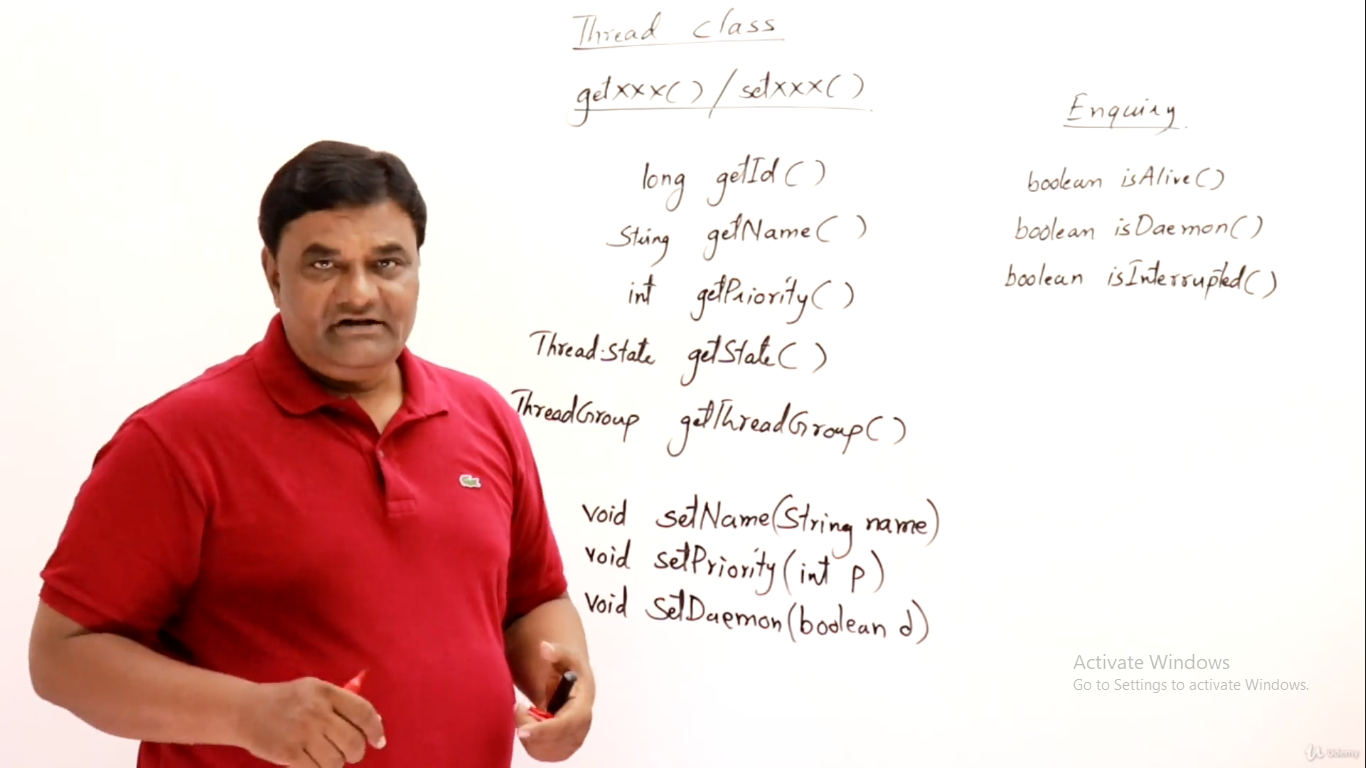 Thread class
getxxx() / setxxx()
long getId()
String getName()
int getPriority()
Thread.State getState()
ThreadGroup getThreadGroup()
void setName(String name)
void setPriority(int p)
void setDaemon(boolean d)
Enquiry
boolean isAlive()
boolean isDaemon()
boolean isInterrupted()
Activate Windows
Go to Settings to activate Windows.
Udemy